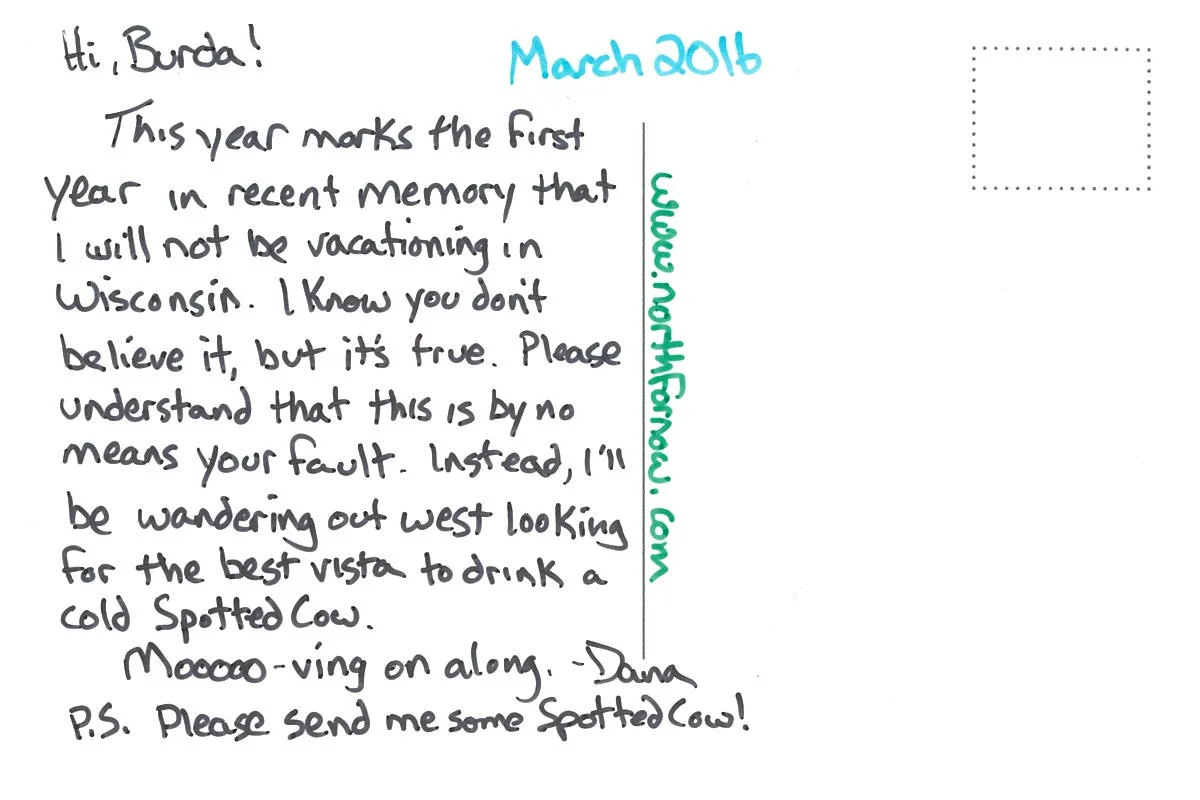 Hi, Burda!
March 2016
This year marks the first
year in recent memory that
I will not be vacationing in
Wisconsin. I know you don't
believe it, but it's true. Please
understand that this is by no
means your fault. Instead, I'll
be wandering out west looking
for the best vista to drink a
cold Spotted Cow.
Mooooo-ving on along. -Dana
P.S. Please send me some Spotted Cow!
www.northfornow.com